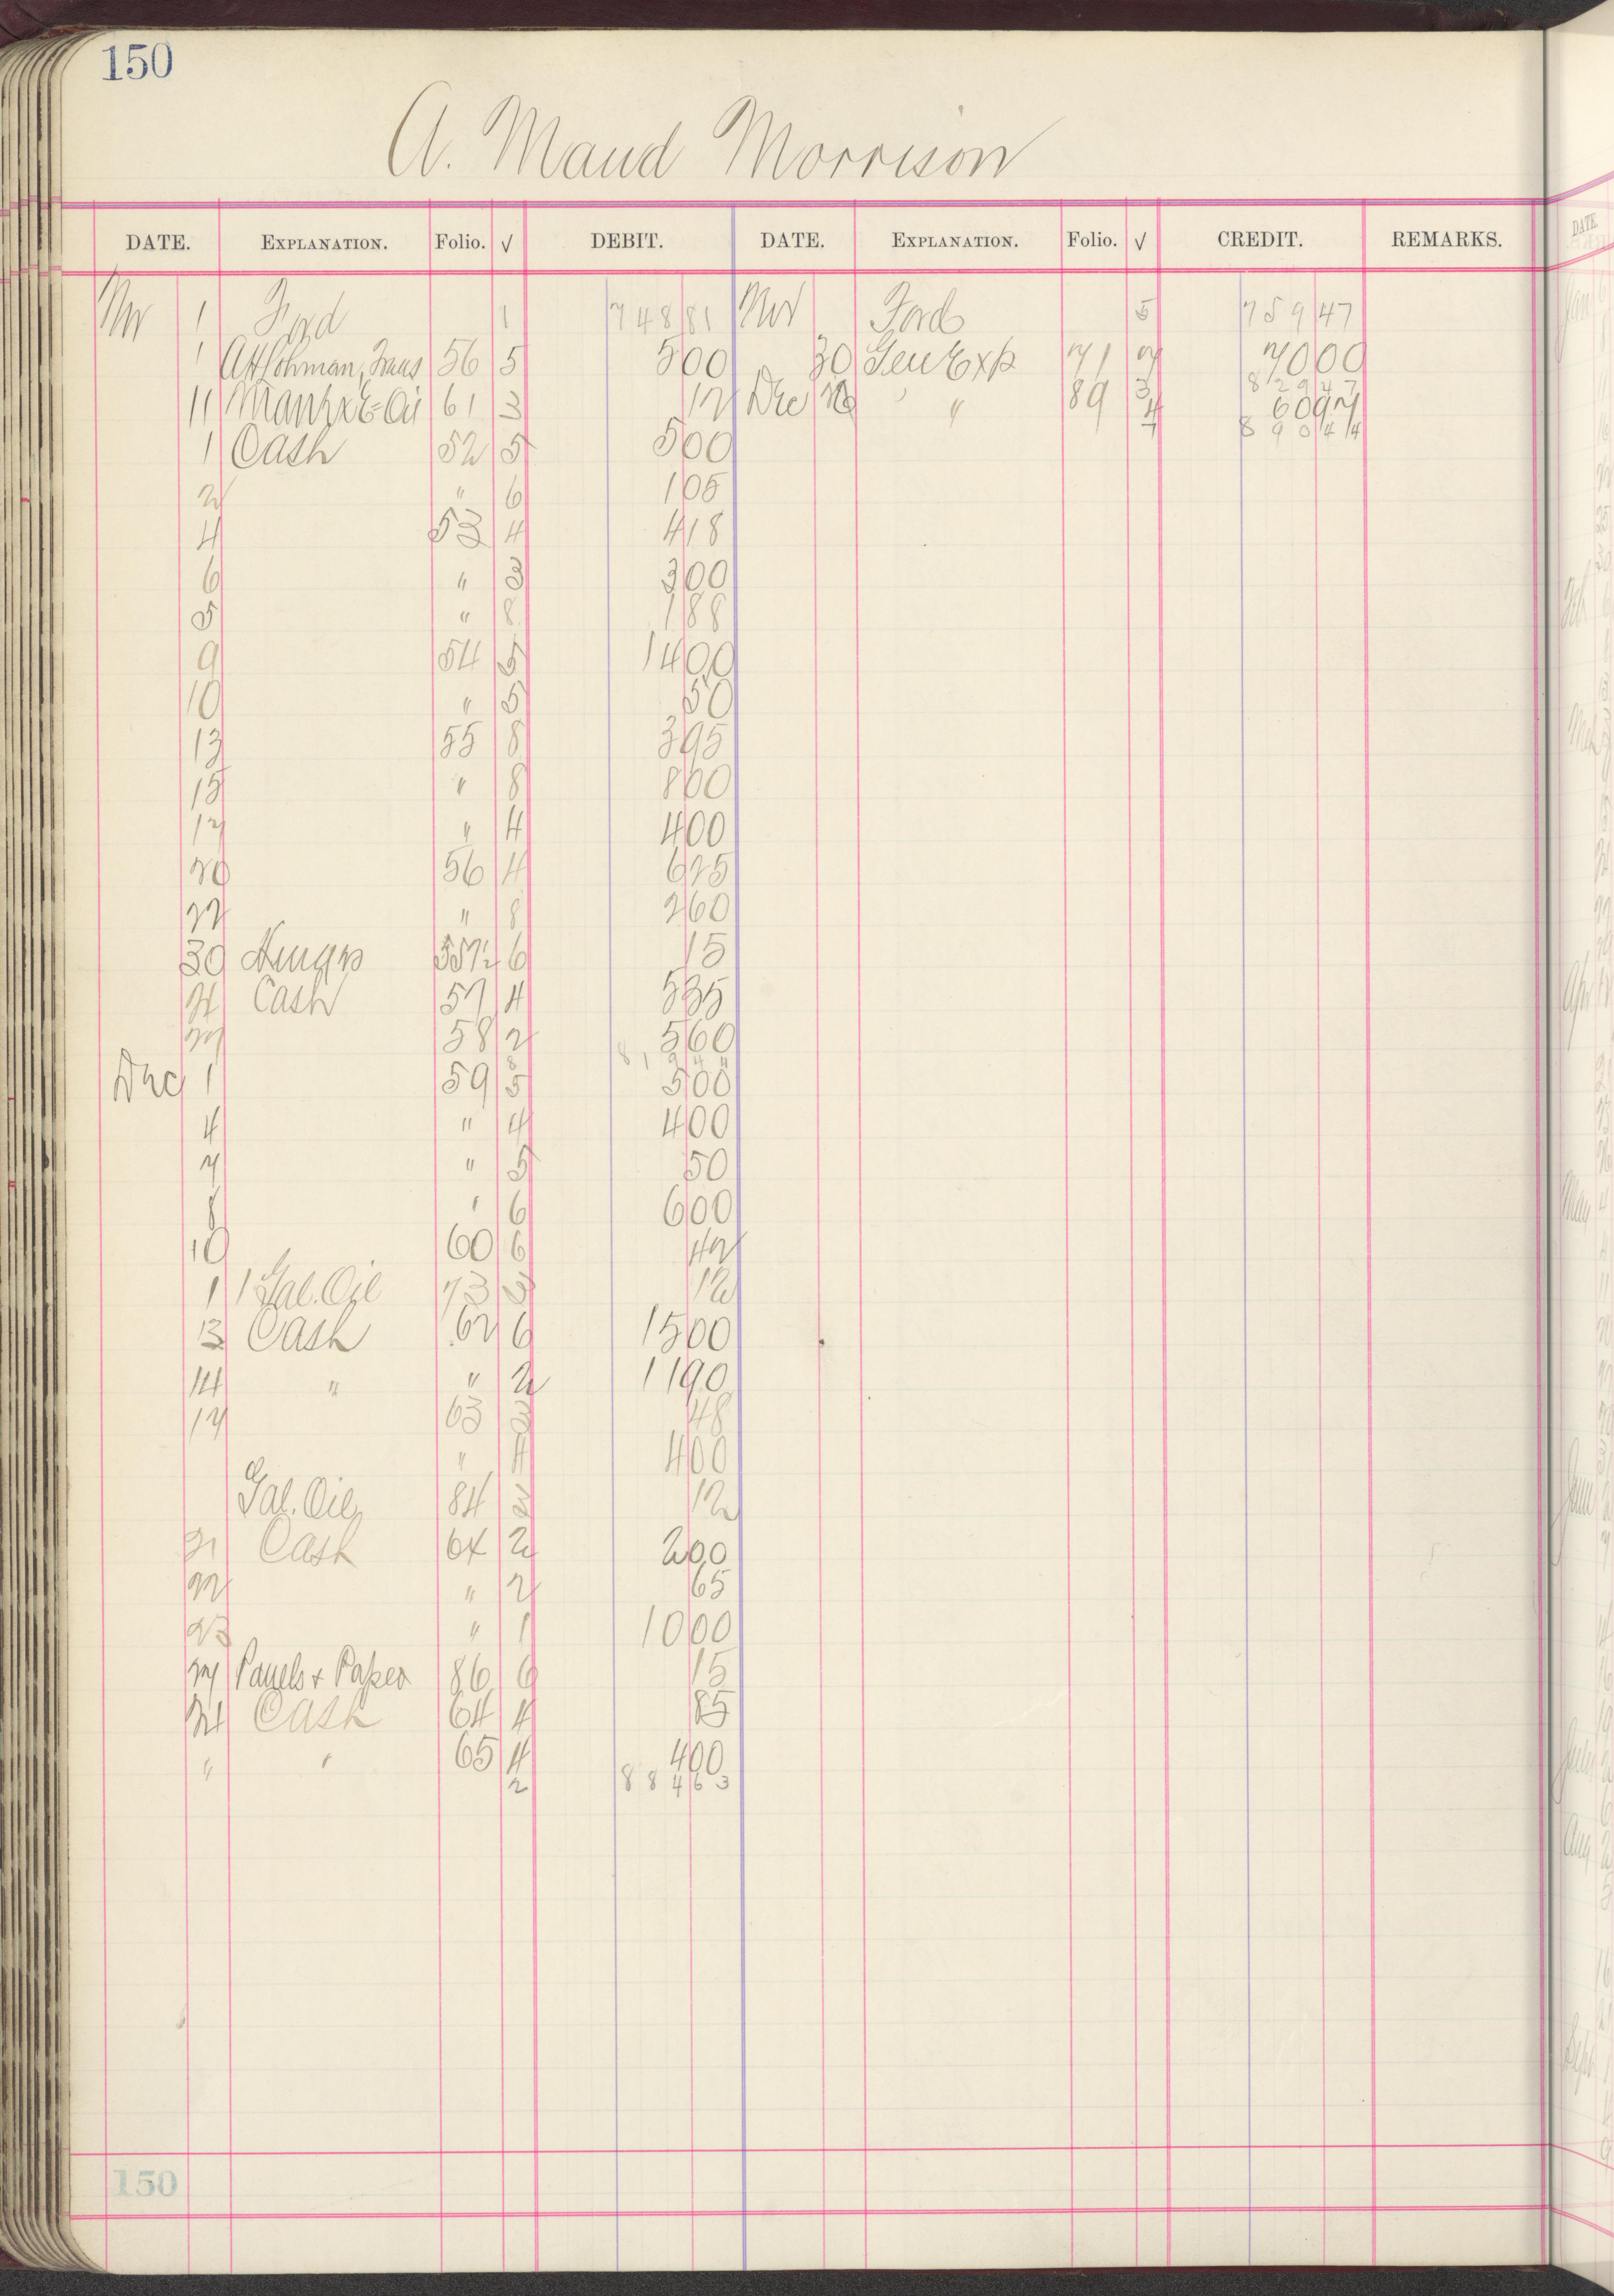 150
A. Maud Morrison
DATE. EXPLANATION. Folio. √ DEBIT. DATE. EXPLANATION. Folio. √ CREDIT. REMARKS.
Nov 1 Ford 1 748 81 Nov Ford 5 759 47
1 56 5 5 00 30 Gen Exp 71 7 70 00
829 47
11 61 3 12 Dec " " 89 3 60 97
4 890 44
1 Cash 52 5 5 00
2 " 6 1 05
4 53 4 4 18
6 " 3 3 00
5 " 8 1 88
9 54 5 14 00
10 " 5 50
13 55 8 3 95
15 " 8 8 00
17 " 4 4 00
20 56 4 6 25
22 " 8 2 60
30 6 15
Cash 57 4 5 35
27 58 2 5 60
Dec 1 59 5 5 00
4 " 4 4 00
7 " 5 50
8 " 6 6 00
10 60 6 42
1 1 Gal. Oil 73 3 12
13 Cash 62 6 15 00
14 " " 2 11 90
17 63 3 48
" 4 4 00
Gal. Oil 84 3 12
21 Cash 64 2 2 00
22 " 2 65
23 " 1 10 00
27 Panels & Paper 86 6 15
Cash 64 4 85
" " 65 4 4 00
2 884 63
150